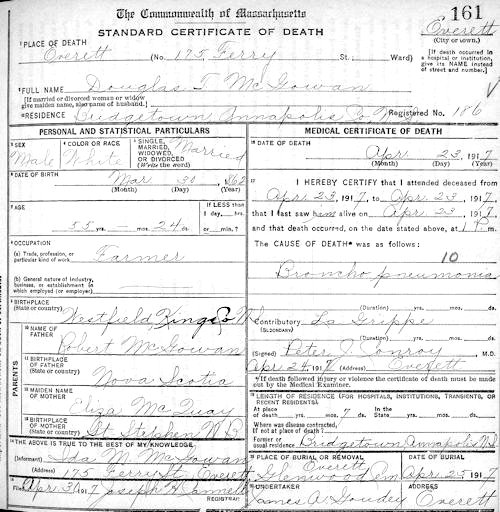 The Commonwealth of Massachusetts
161
STANDARD CERTIFICATE OF DEATH
Everett
(City or town.)
1 PLACE OF DEATH
Everett (No. 175 Ferry St.; Ward)
[If death occurred in a hospital or institution, give its NAME instead of street and number.]
2 FULL NAME Douglas McGowan
[If married or divorced woman or widow give maiden name, also name of husband.]
RESIDENCE Bridgetown Annapolis Co Registered No. 186
PERSONAL AND STATISTICAL PARTICULARS
3 SEX
Male
4 COLOR OR RACE
White
5 SINGLE, MARRIED, WIDOWED, OR DIVORCED (Write the word)
Married
6 DATE OF BIRTH
Mar 30 1862
(Month) (Day) (Year)
7 AGE
55 yrs. — mos. 24 ds.
If LESS than 1 day, hrs. or min.?
8 OCCUPATION
(a) Trade, profession, or particular kind of work
Farmer
(b) General nature of industry, business, or establishment in which employed (or employer)
9 BIRTHPLACE
(State or country)
Westfield Kings Co
PARENTS
10 NAME OF FATHER
Robert McGowan
11 BIRTHPLACE OF FATHER
(State or country)
Nova Scotia
12 MAIDEN NAME OF MOTHER
Eliza McQuay
13 BIRTHPLACE OF MOTHER
(State or country)
St Stephen N B
14 THE ABOVE IS TRUE TO THE BEST OF MY KNOWLEDGE.
(Informant) McGowan
(Address) 175 Ferry St. Everett
15 Filed Apr. 3 1917 Joseph H.
REGISTRAR
MEDICAL CERTIFICATE OF DEATH
16 DATE OF DEATH
Apr 23, 1917
(Month) (Day) (Year)
17 I HEREBY CERTIFY that I attended deceased from
Apr 23, 1917, to Apr 23, 1917,
that I last saw him alive on Apr 23, 1917,
and that death occurred, on the date stated above, at 1 P.m.
The CAUSE OF DEATH* was as follows:
10
Broncho pneumonia
(Duration) yrs. mos. ds.
Contributory La Grippe
(SECONDARY)
(Duration) yrs. mos. ds.
(Signed) Peter J. Conroy M.D.
Apr 24, 1917 (Address) Everett
*If death followed injury or violence the certificate of death must be made out by the Medical Examiner.
18 LENGTH OF RESIDENCE (FOR HOSPITALS, INSTITUTIONS, TRANSIENTS, OR RECENT RESIDENTS).
At place of death yrs. mos. 7 ds. In the State yrs. mos. ds.
Where was disease contracted, if not at place of death?
Former or usual residence Bridgetown Annapolis N.S.
19 PLACE OF BURIAL OR REMOVAL
Everett
Glenwood Cem
DATE OF BURIAL
Apr 25 1917
20 UNDERTAKER
James A. Goudey
ADDRESS
Everett